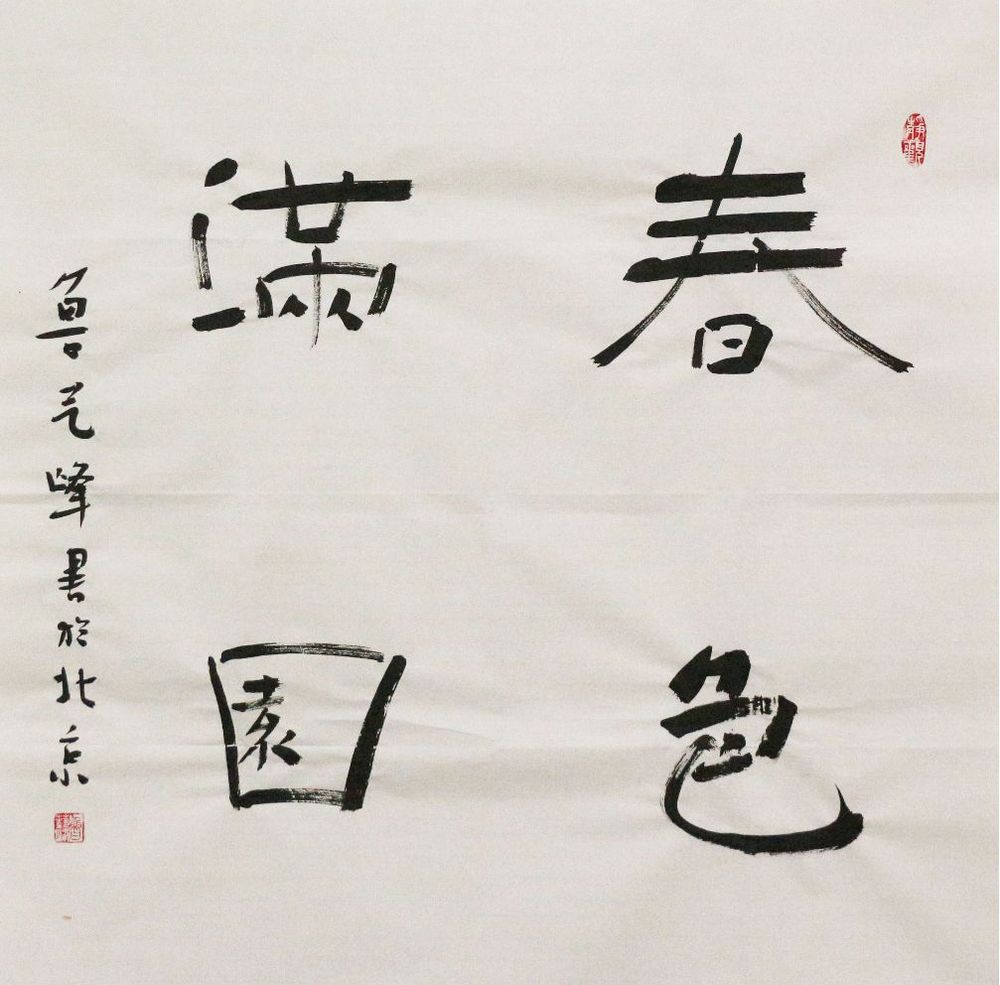 春色
滿園
魯艺峰書於北京